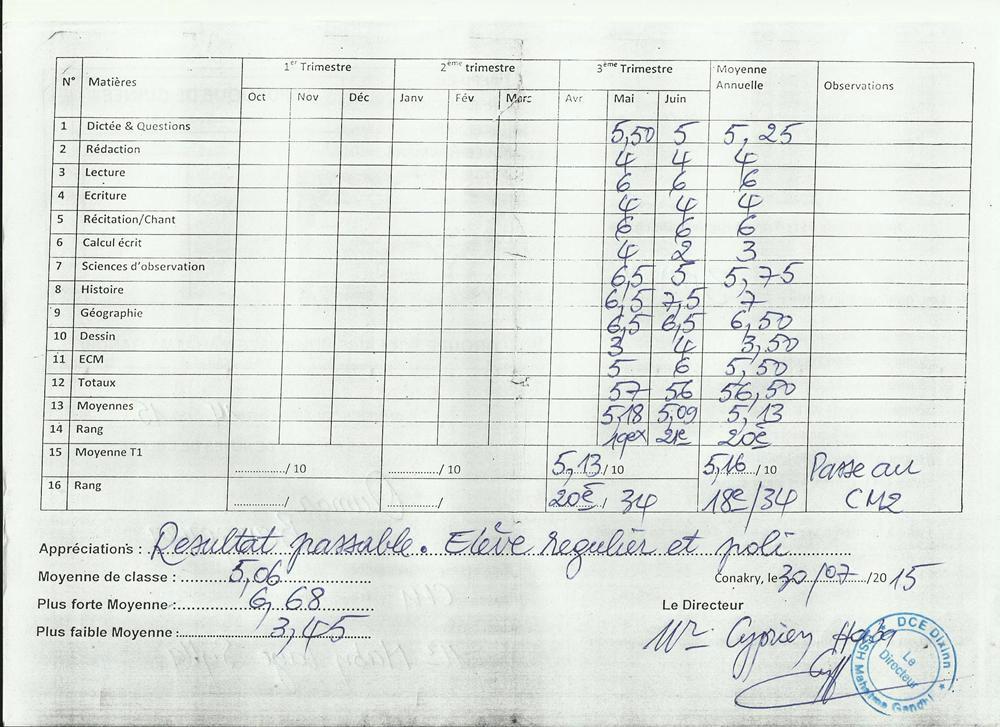 N° Matières 1er Trimestre 2ème trimestre 3ème Trimestre Moyenne Annuelle Observations
Oct Nov Déc Janv Fév Mars Avr Mai Juin
1 Dictée & Questions 5,50 5 5,25
2 Rédaction 4 4 4
3 Lecture 6 6 6
4 Ecriture 4 4 4
5 Récitation/Chant 6 6 6
6 Calcul écrit 4 2 3
7 Sciences d'observation 6,5 5 5,75
8 Histoire 6,5 7,5 7
9 Géographie 6,5 6,5 6,50
10 Dessin 3 4 3,50
11 ECM 5 6 5,50
12 Totaux 57 56 56,50
13 Moyennes 5,18 5,09 5,13
14 Rang 19ex 21e 20è
15 Moyenne T1 ............../ 10 ............../ 10 5,13/ 10 5,16 / 10 Passe au
16 Rang ............../ ............../ 20è / 34 18è/34 CM2
Appréciations : Resultat passable. Elève regulièr et poli
Moyenne de classe : 5,06
Conakry, le 30/07/20 15
Plus forte Moyenne : 6,68
Le Directeur
Plus faible Moyenne : 3,45
Mr Cyprien
DCE Dixinn
Le Directeur
Mahatma Gandhi